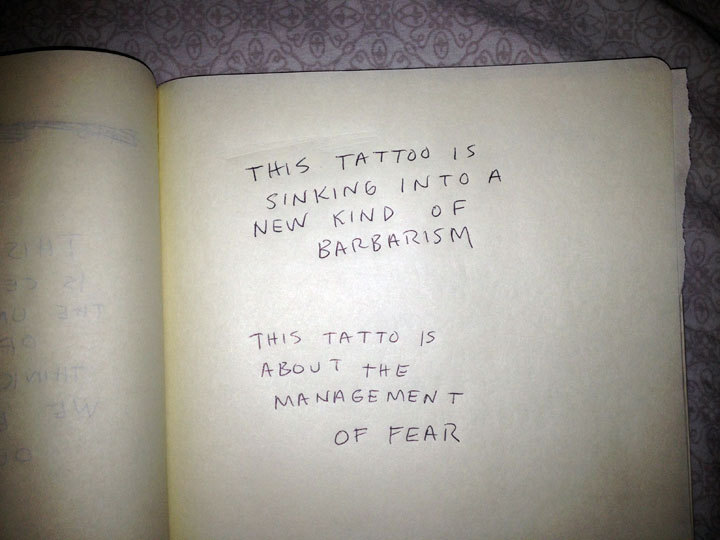 THIS TATTOO IS
SINKING INTO A
NEW KIND OF
BARBARISM
THIS TATTO IS
ABOUT THE
MANAGEMENT
OF FEAR